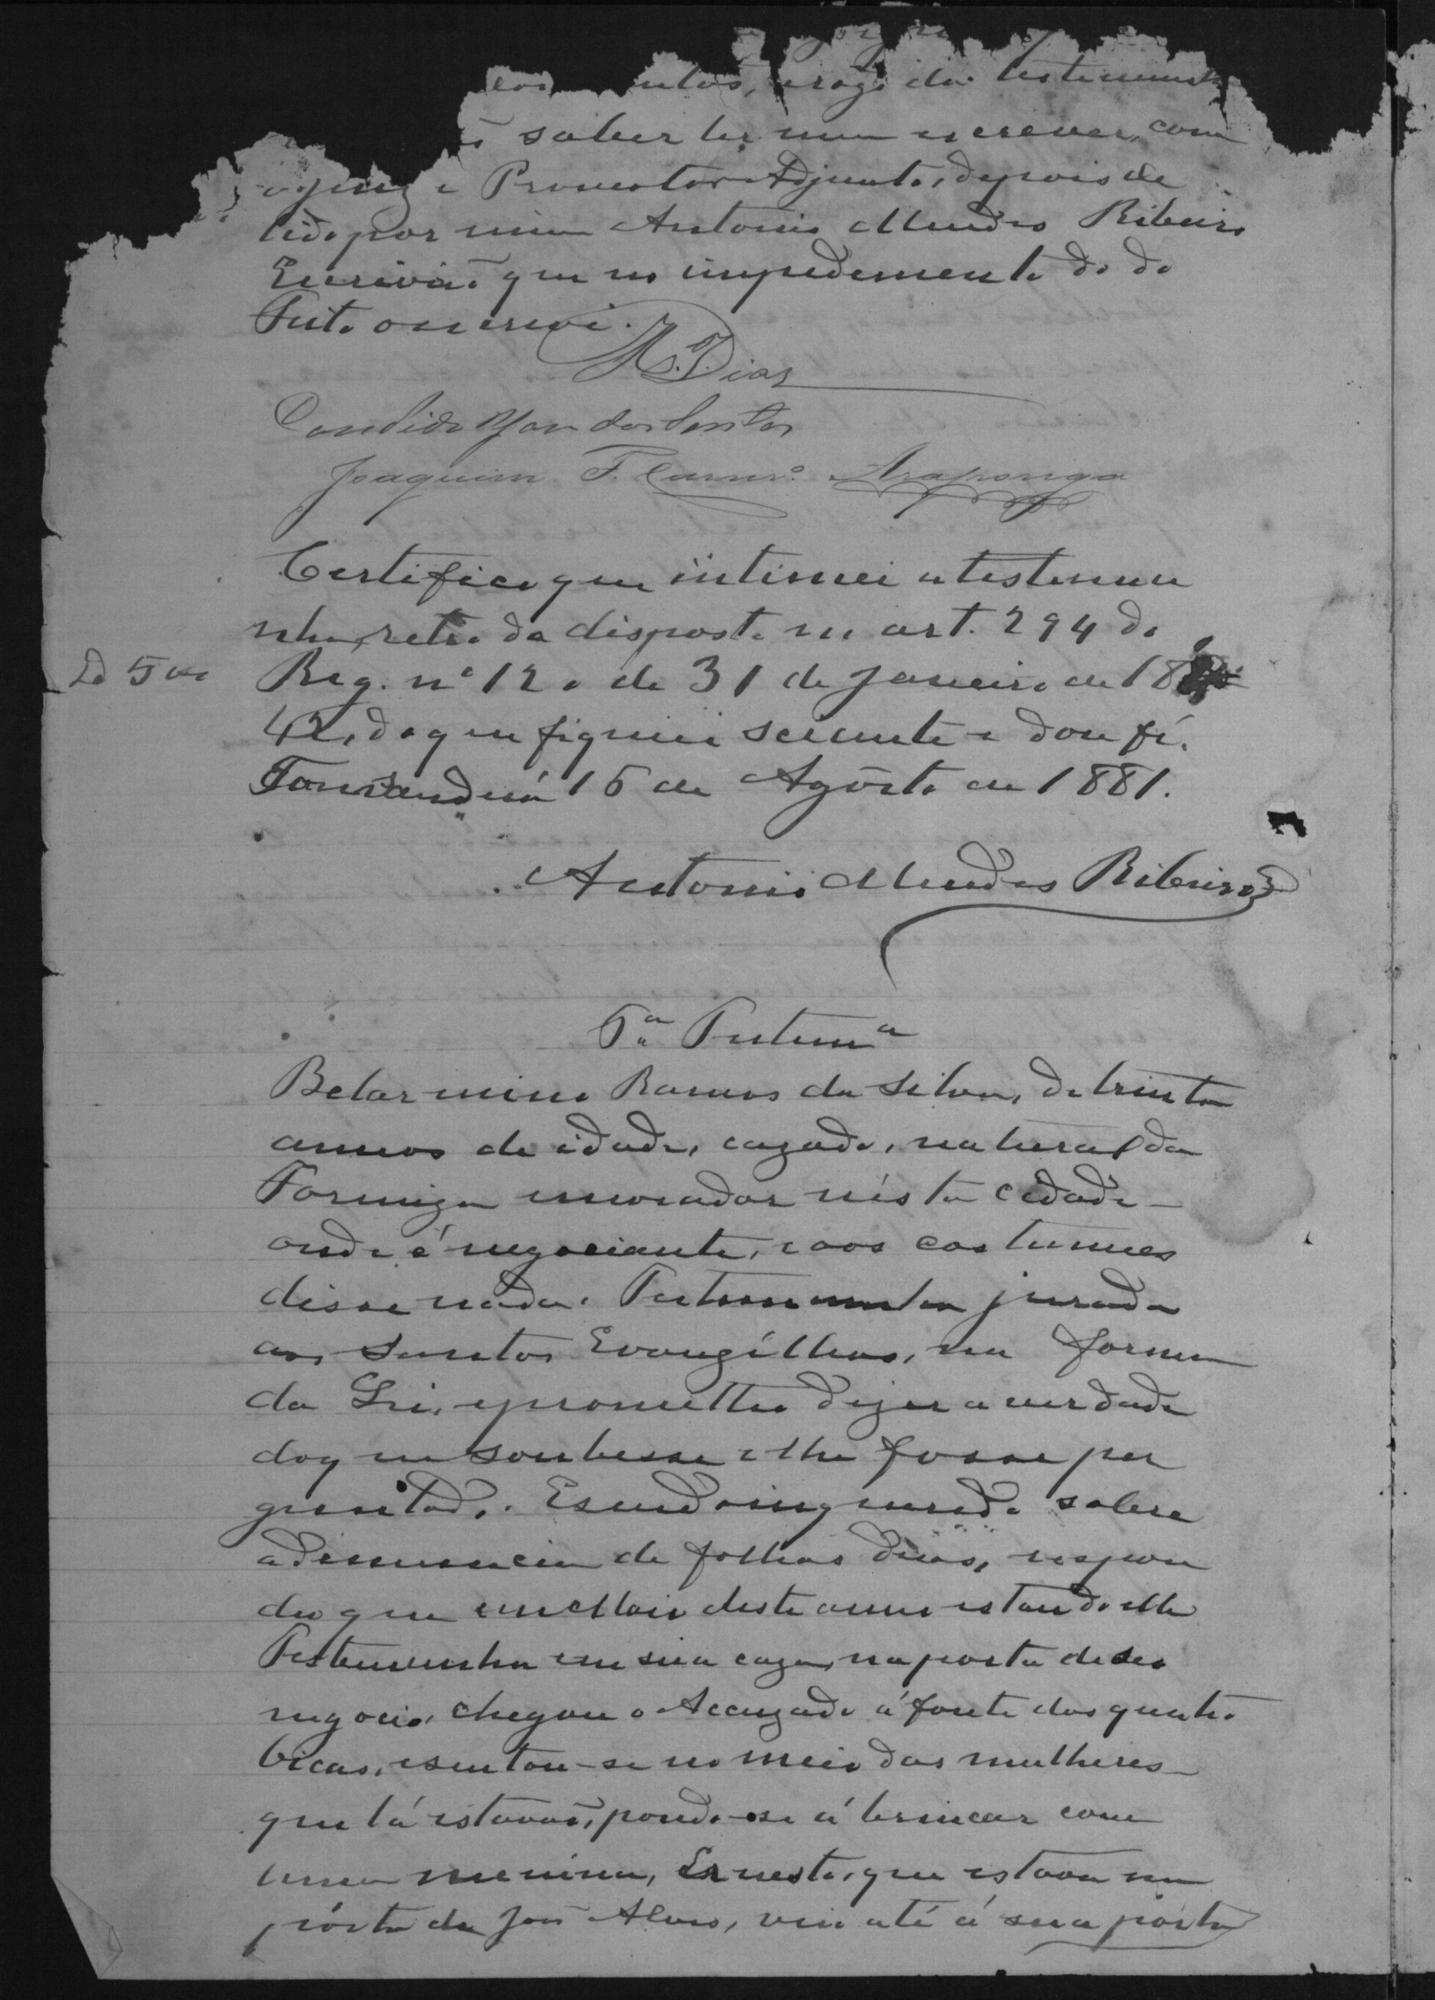 rogo da testemunha
saber ler nem escrever, com
o Juiz e Promotor Adjunto, depois de
lido por mim Antonio Mendes Ribeiro
Escrivão que no impedimento do do
Feito o escrevi.
Dias
Candido dos Santos
Joaquim F. Carnro. Araponga
Certifico que intimei a testemu
nha retro da disposto no art. 294 do
Reg. nº 120 de 31 de Janeiro de 18
42, do que ficou sciente e dou fé.
15 de Agôsto de 1881.
Antonio Mendes Ribeiro
5ª Testemª
Belarmino Ramos da Silva, de trinta
annos de idade, cazado, natural da
Formiga e morador nésta cidade
onde é negociante, e aos costumes
disse nada. Testemunha jurada
aos Santos Evangélhos, na forma
da Lei, e prometteu dizer a verdade
do que soubesse e lhe fosse per
guntado. E sendo inquerido sobre
a denuncia de folhas duas, respon
deu que em Maio deste anno estando elle
Testemunha em sua caza, na porta de seo
negocio, chegou o Accuzado á fonte das quatro
bicas, e sentou-se no meio das mulheres
que lá estavão, pondo-se á brincar com
uma menina, Ernesto, que estava na
pórta de João Alves, veio até á sua pórta